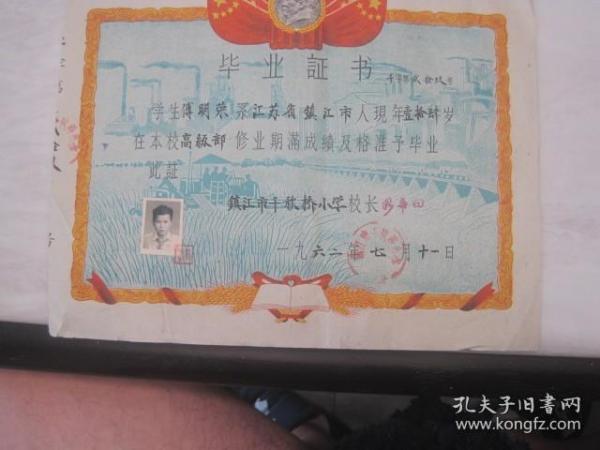 毕业証书
学生傅明荣系江苏省鎮江市人現年壹拾肆岁
在本校高級部修业期滿成績及格准予毕业
此証
鎮江市丰放桥小学校长
一九六二年七月十一日
孔夫子旧書网
www.kongfz.com